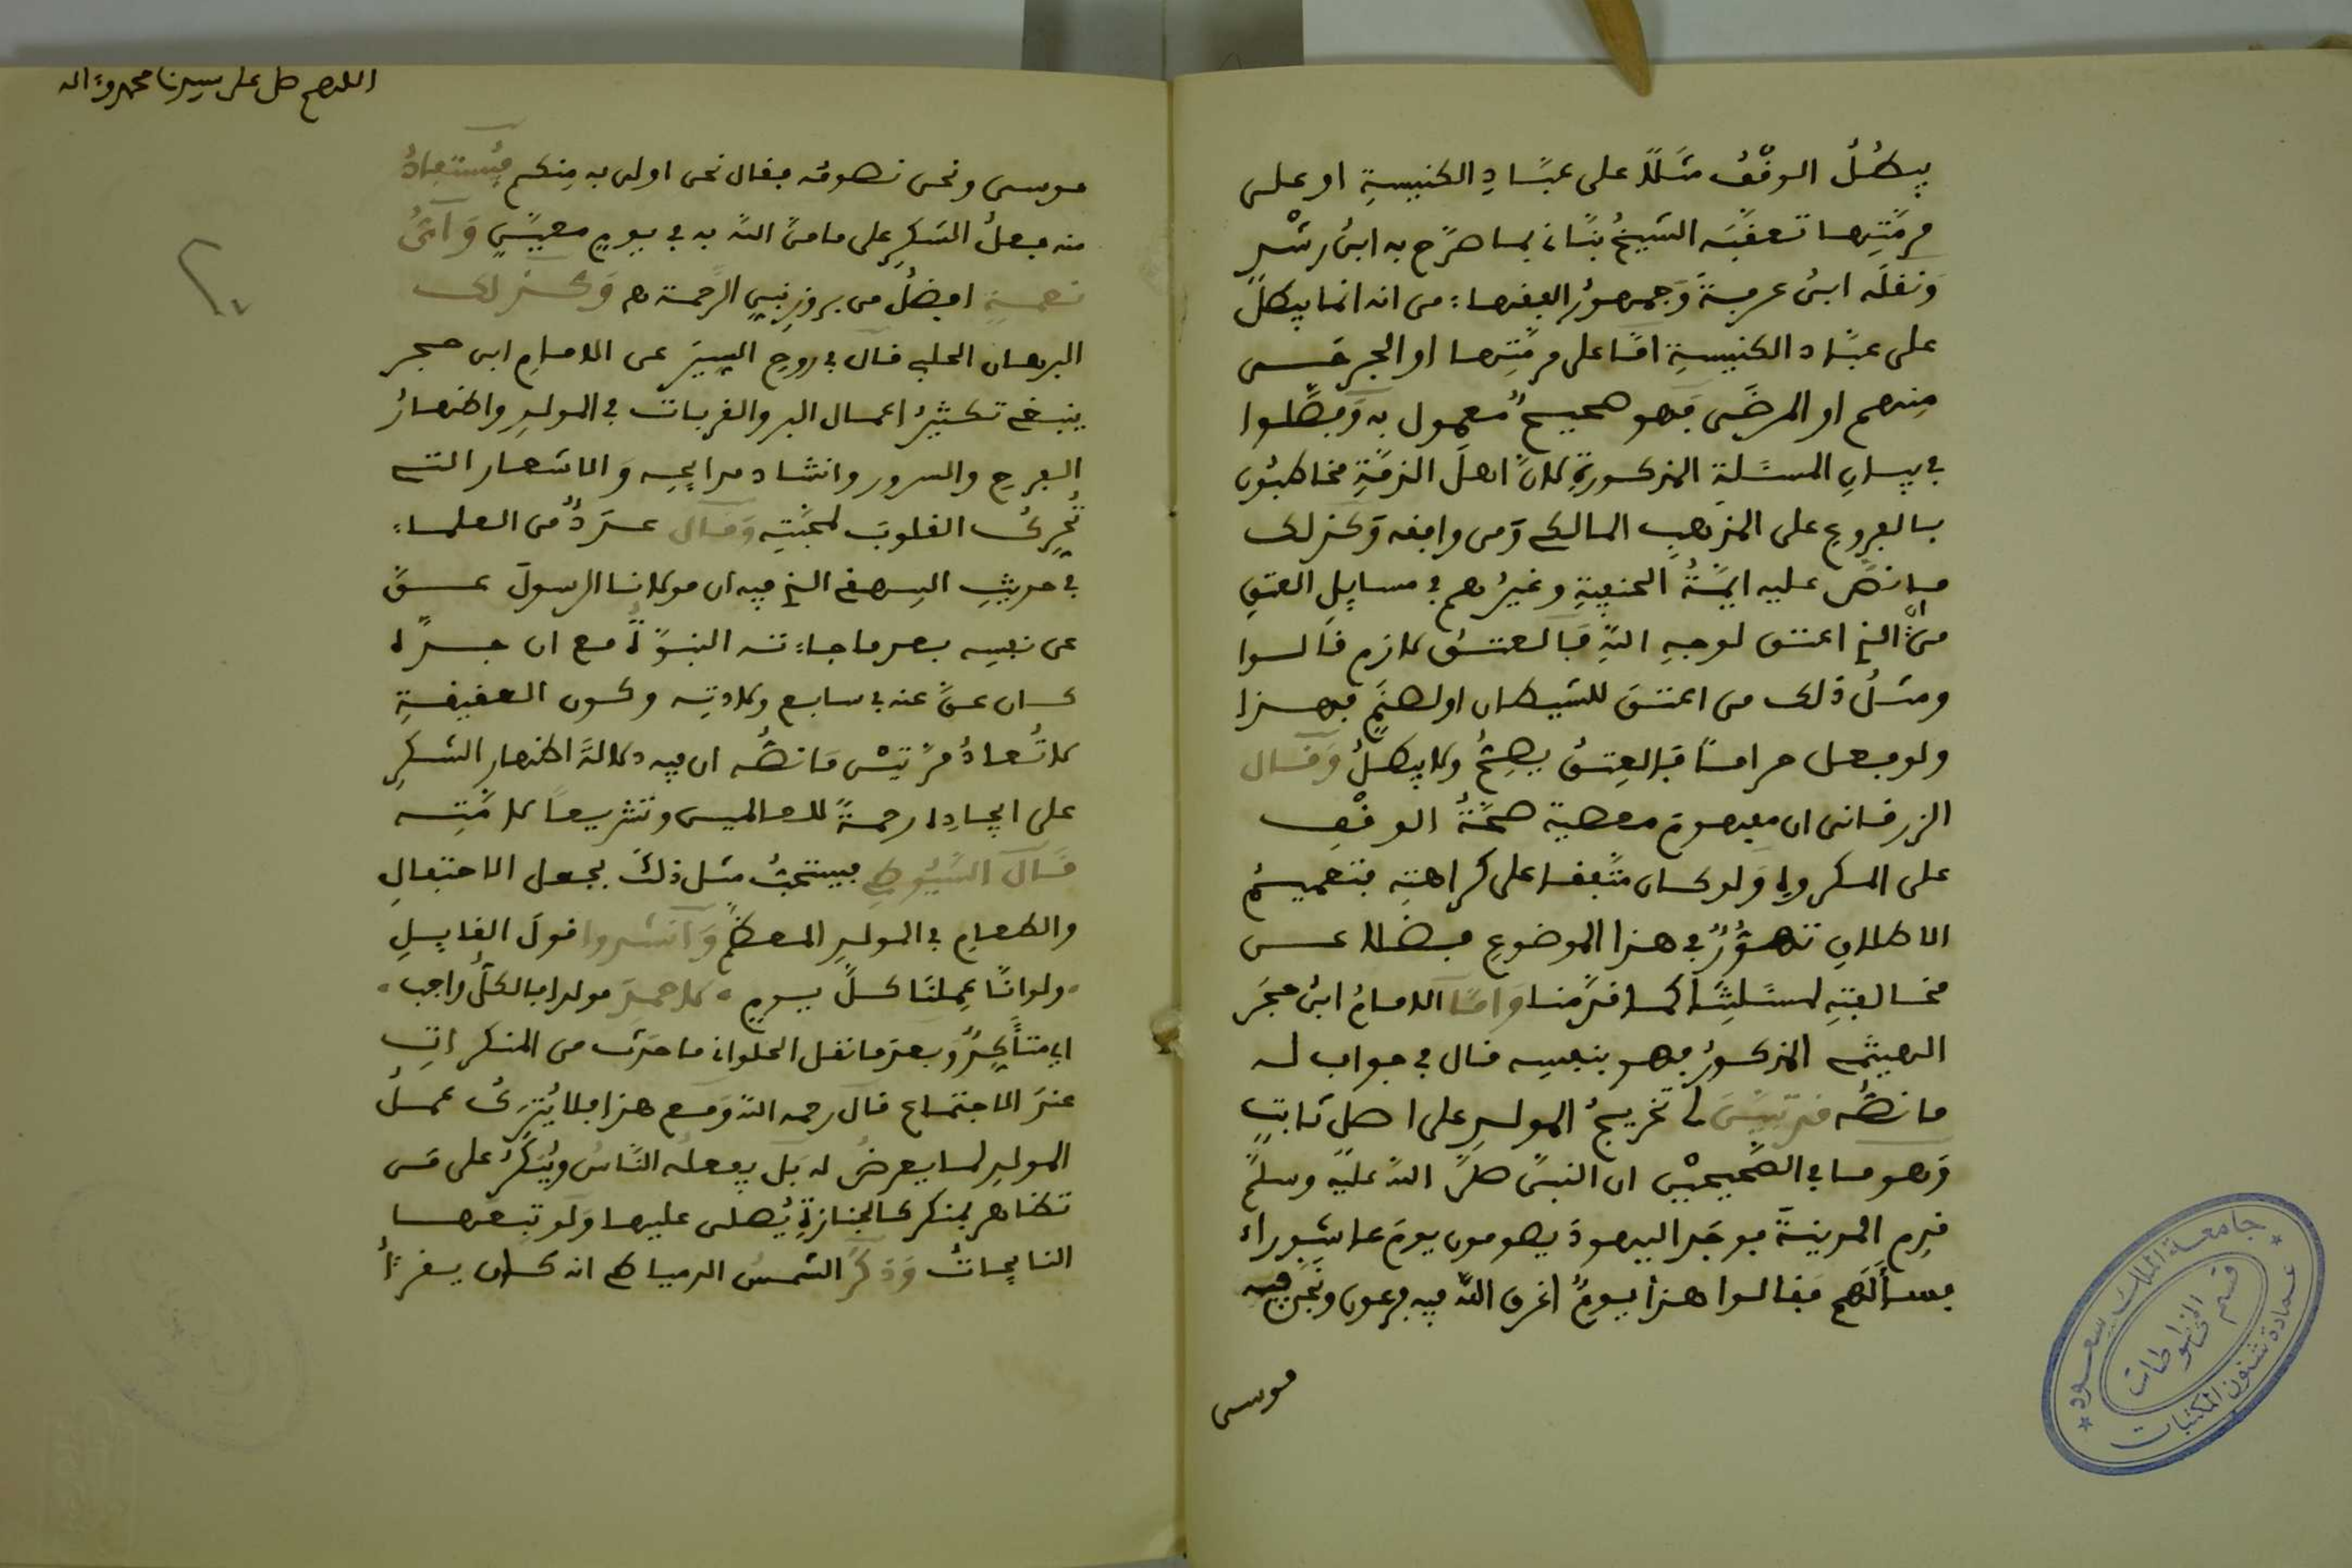 يبطلُ الوقْفُ مثَلاً على عبَّادِ الكنيسةِ او على
مرمَّتِها تعقبَه الشيخُ بنّانى بما صرّح به ابنُ رشْدٍ
وَنقلَه ابنُ عرفةَ وَجمهورُ الفقهاء من انه انما يبطلُ
على عبّاد الكنيسةِ امّا على مرمّتِها او الجرحَى
منهم او المرضَى فَهو صحيحٌ معمول به وَفصَّلوا
في بيانِ المسئلةِ المذكورةِ لانَّ اهلَ الذمَّةِ مخاطبُون
بالفروعِ على المذهبِ المالكي وَمن وافقه وَكذلك
ما نصَّ عليه ايمَّةُ الحنفيةِ وغيرُهم في مسايلِ العتقِ
من انَّ الذي اعتق لوجهِ اللهِ فَالعتقُ لازم قالوا
ومثلُ ذلك من اعتقَ للشيطان او لصنَمٍ فهذا
ولو فعل حراماً فَالعِتقُ يصِحُّ ولا يبطلُ وَقال
الزرقانى ان مفهومَ معصية صحَّةُ الوقْفِ
على المكروهِ وَلو كان متَّفقا على كراهتِه فتعميمُ
الاطلاقِ تهوُّرٌ في هذا الموضوعِ فضلا عن
مخالفتِه لمسئلتِنَا كما قدَّمنا وَامّا الامامُ ابنُ حجَر
الهيثمي المذكورُ فهو بنفسِه قال في جواب له
ما نصُّه قد تبيّنَ لى تخريجُ المولدِ على اصلٍ ثابتٍ
وَهو ما في الصَّحيحيْن ان النبيَّ صلى اللهُ عليه وسلم
قدِم المدينةَ فوجَد اليهودَ يصومون يومَ عاشوراء
فسألَهم فقالوا هذا يومٌ اغرق اللهُ فيه فرعون ونجَّى فيه
موسى
اللهم صل على سيدنا محمد وءاله
موسى ونحن نصومه فقال نحن اولى به منكم فيُستفادُ
منه فعلُ الشكرِ على ما منَّ اللهُ به في يومٍ معيّنٍ وَاىُّ
نعمةٍ افضلُ من بروزِ نبيِ الرَّحمة هـ وَكذلك
البرهان الحلبي قال في روحِ السِّيَر عن الامامِ ابن حجر
ينبغى تكثيرُ اعمال البر والقربات في المولدِ واظهارُ
الفرحِ والسرور وانشاد مدايحِه وَالاشعار التى
تُحرِّكُ القلوبَ لمحبَّتِه وَقال عدَدٌ من العلماء
في حديثِ البيهقى الذي فيه ان مولانا الرسولَ عقَّ
عن نفسِه بعد ما جاءته النبوَّةُ مع ان جدَّه
كان عقَّ عنه في سابع ولادتِه وكون العقيقةِ
لا تُعادُ مرَّتيْن مَا نصُّه ان فيه دلالةَ اظهارِ الشكرِ
على ايجادِه رحمةً للعالمين وتشريعاً لامَّتِه
قَالَ السُّيُوطي فيستحبُّ مثل ذلكَ بجعل الاحتفالِ
والطعامِ في المولدِ المعظَّمِ وَانشدوا قولَ القايلِ
ولو انَّا عمِلنَا كلَّ يومٍ ۰ لاحمدَ مولدا فالكلُّ واجب ۰
اي متأكِّدٌ وَبعدَ ما نقل الحلوانى ما حدَث من المنكراتِ
عندَ الاجتماع قال رحمه الله وَمع هذا فلا يُترَكُ عملُ
المولدِ لما يعرضُ له بَل يفعلُه النَّاسُ ويُنكَرُ على مَن
تظاهر بمنكر كالجنازةِ يُصلى عليها وَلو تبِعتها
النايحاتُ وَذكرَ الشمسُ الدمياطي انه كان يقرأُ
جامعة الملك سعود
عمادة شئون المكتبات
قسم المخطوطات